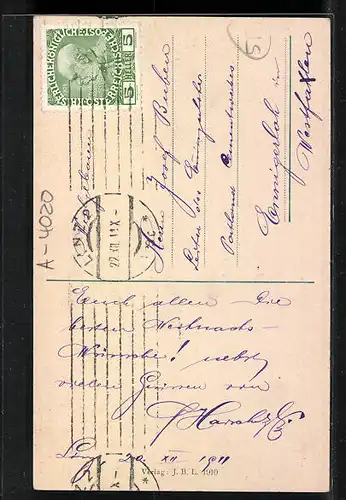 KAISERLICHE KÖNIGLICHE ÖSTERREICHISCHE POST
5 HELLER 5
LINZ 2
22.XII.11.X
A-4020
Herrn
Josef Buben
Leiter des Enningerloher
Portland Cementwerkes
Ennigerloh in
Westfalen
Euch allen die
besten Weihnachts-
Wünsche! nebst
vielen Grüssen von
Linz 20. XII 1911
Verlag: J. B. L. 1910